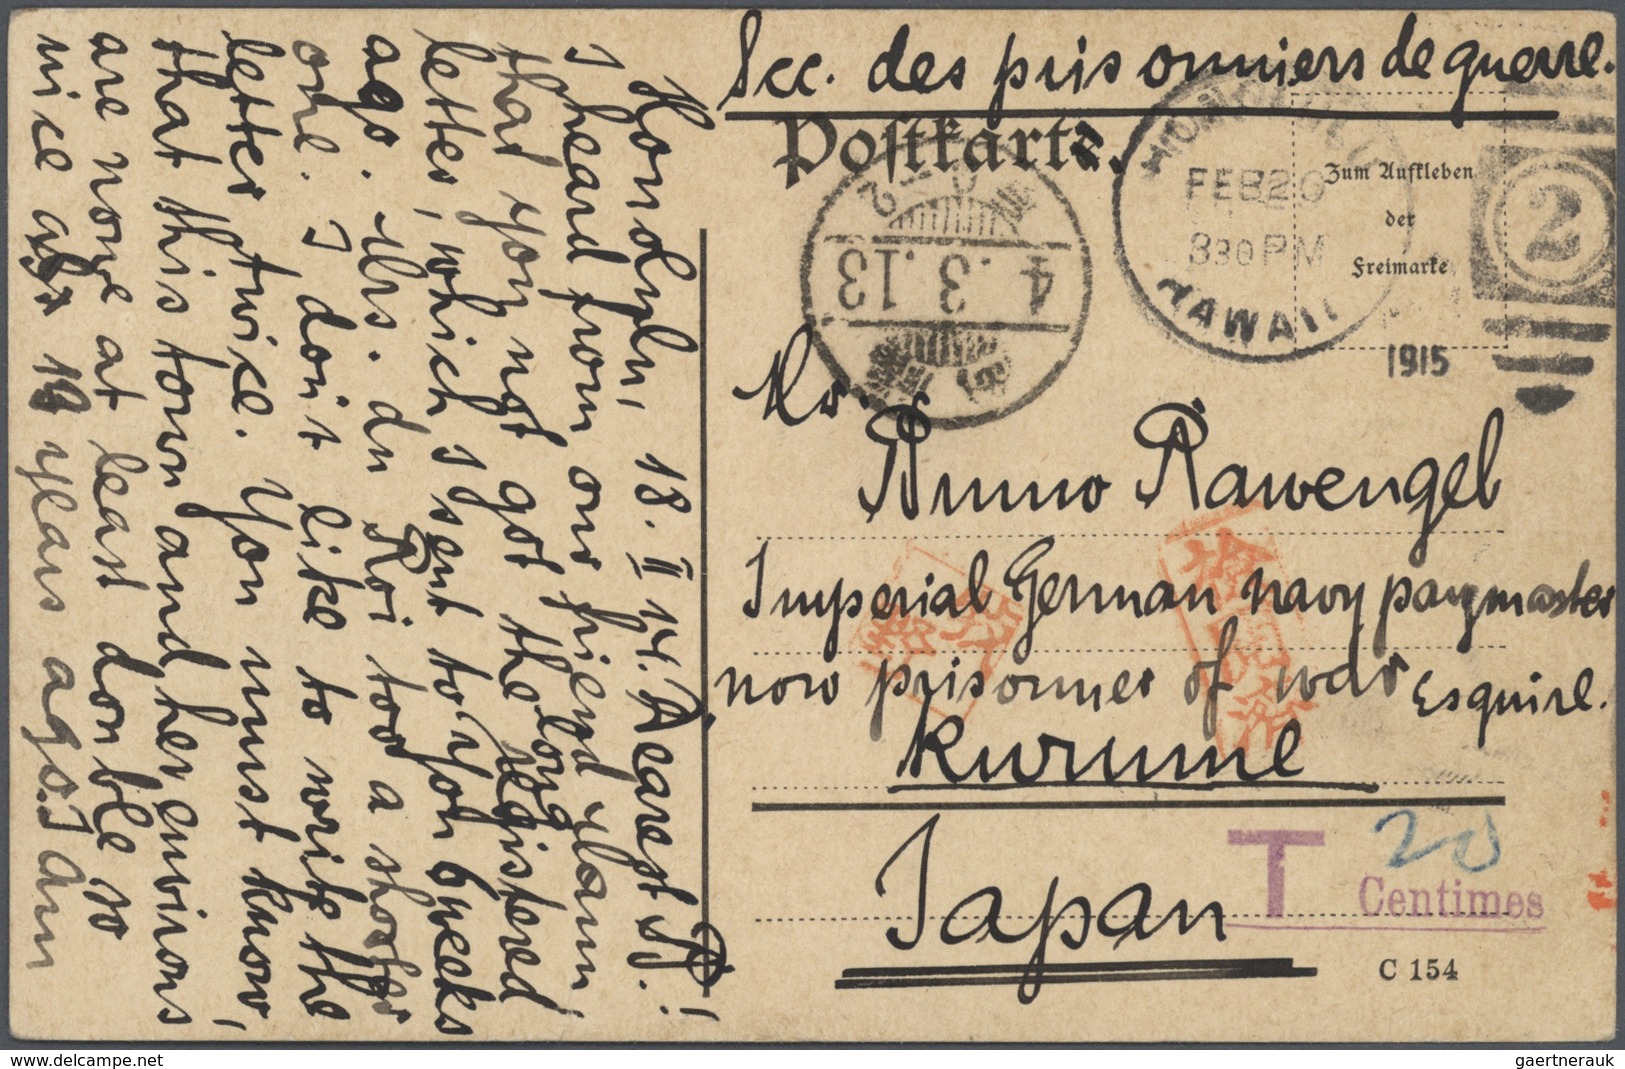 Scc. des prisonniers de guerre.
Postkarte.
HONOLULU
FEB 20
830 PM
HAWAII
1915
2
Zum Aufkleben
der
Freimarke
4.3.13
Mr.
Anno Rawengel
Imperial German navy paymaster
now prisonner of war Esquire.
Kurume
Japan
T 20
Centimes
C 154
Honolulu, 18. II 14. Dearest
I heard from our friend
that you not got the long registered
letter, which I sent to you 6 weeks
ago. Mrs. dr Roi too a shorter
one. I don't like to write the
letter twice. You must know,
that this town and her environs
are nowe at least double so
nice as 19 years ago. I am
gaertnerauk
www.delcampe.net